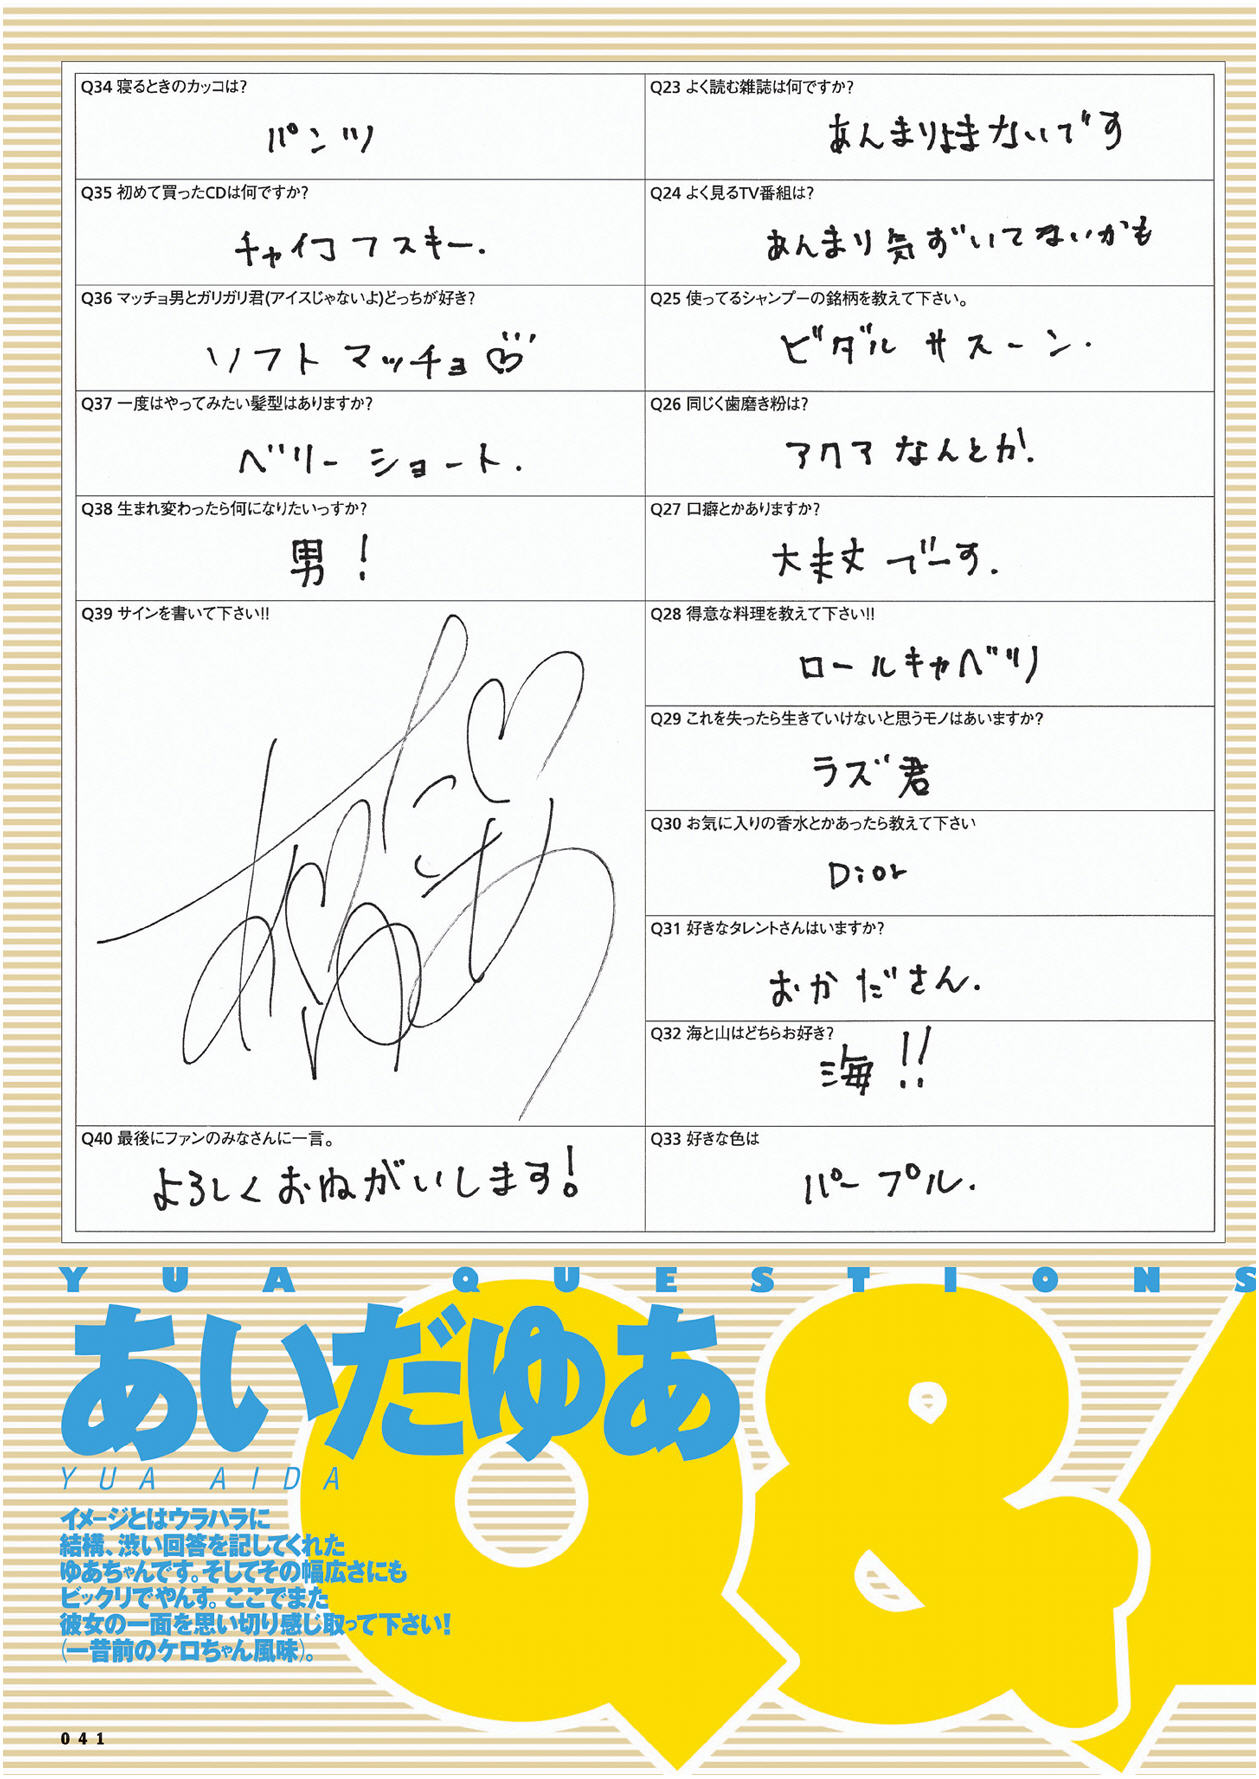 Q34 寝るときのカッコは?
パンツ
Q35 初めて買ったCDは何ですか?
チャイコフスキー.
Q36 マッチョ男とガリガリ君(アイスじゃないよ)どっちが好き?
ソフトマッチョ♡
Q37 一度はやってみたい髪型はありますか?
ベリーショート.
Q38 生まれ変わったら何になりたいっすか?
男!
Q39 サインを書いて下さい!!
Q40 最後にファンのみなさんに一言。
よろしくおねがいします!
Q23 よく読む雑誌は何ですか?
あんまりよまないです
Q24 よく見るTV番組は?
あんまり気ずいてないかも
Q25 使ってるシャンプーの銘柄を教えて下さい。
ビダルサスーン.
Q26 同じく歯磨き粉は?
アクアなんとか.
Q27 口癖とかありますか?
大丈夫でーす.
Q28 得意な料理を教えて下さい!!
ロールキャベツ
Q29 これを失ったら生きていけないと思うモノはあいますか?
ラズ君
Q30 お気に入りの香水とかあったら教えて下さい
Dior
Q31 好きなタレントさんはいますか?
おかださん.
Q32 海と山はどちらお好き?
海!!
Q33 好きな色は
パープル.
YUA QUESTIONS
あいだゆあ
YUA AIDA
Q&
イメージとはウラハラに
結構、渋い回答を記してくれた
ゆあちゃんです。そしてその幅広さにも
ビックリでやんす。ここでまた
彼女の一面を思い切り感じ取って下さい!
(一昔前のケロちゃん風味)。
041